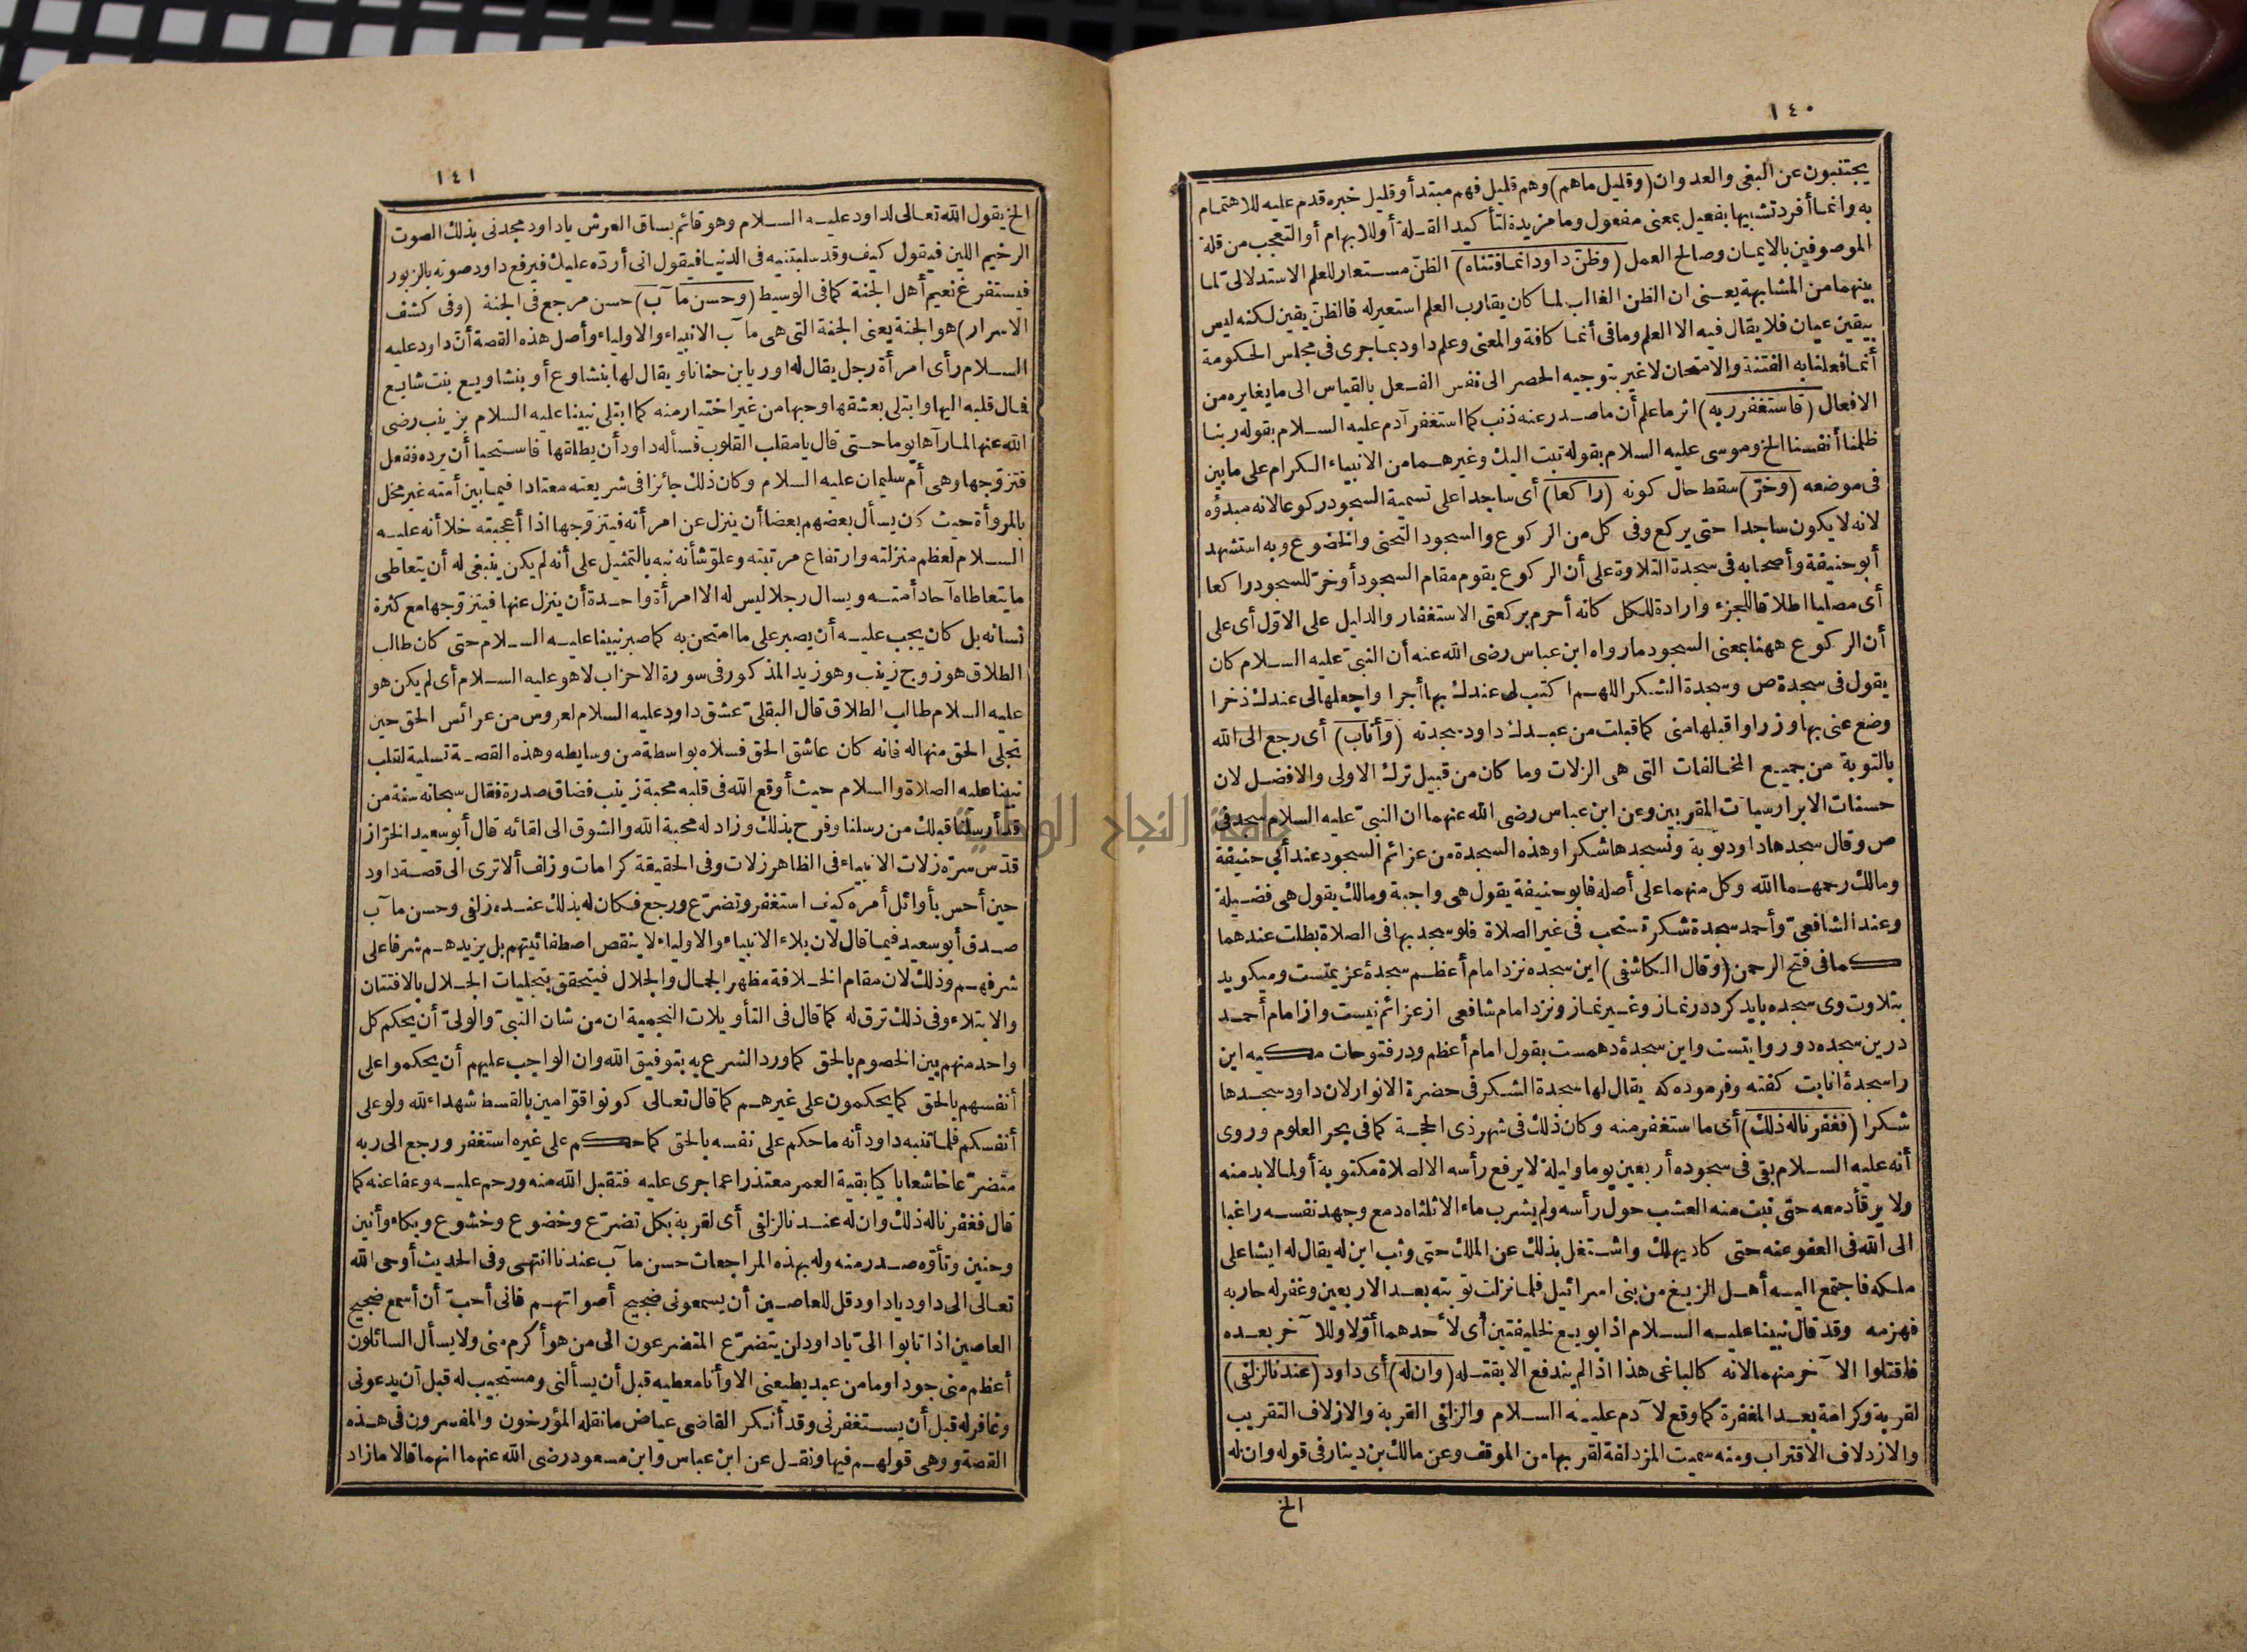 ١٤٠
يجتنبون عن البغى والعدوان (وقليل ماهم) وهم قليل فهم مبتدأ وقليل خبره قدم عليه للاهتمام
به وانما أفرد تشبيها بفعيل بمعنى مفعول وما مزيدة لتأكيد القلة أو للابهام أو التعجب من قلة
الموصوفين بالايمان وصالح العمل (وظنّ داود انما فتناه) الظنّ مستعار للعلم الاستدلالىّ لما
بينهما من المشابهة يعنى ان الظن الغالب لما كان يقارب العلم استعير له فالظنّ يقين لكنه ليس
بيقين عيان فلا يقال فيه الا العلم وما فى أنما كافة والمعنى وعلم داود بما جرى فى مجلس الحكومة
أنما فعلنا به الفتنة والامتحان لا غير بتوجيه الحصر الى نفس الفعل بالقياس الى ما يغايره من
الافعال (فاستغفر ربه) اثر ما علم أن ما صدر عنه ذنب كما استغفر آدم عليه السلام بقوله ربنا
ظلمنا أنفسنا الخ وموسى عليه السلام بقوله تبت اليك وغيرهما من الانبياء الكرام على ما بين
فى موضعه (وخرّ) سقط حال كونه (راكعا) أى ساجدا على تسمية السجود ركوعا لانه مبدؤه
لانه لا يكون ساجدا حتى يركع وفى كل من الركوع والسجود التحنى والخضوع وبه استشهد
أبو حنيفة وأصحابه فى سجدة التلاوة على أن الركوع يقوم مقام السجود أو خرّ للسجود راكعا
أى مصليا اطلاقا للجزء وارادة للكل كانه أحرم بركعتى الاستغفار والدليل على الاوّل أى على
أن الركوع ههنا بمعنى السجود ما رواه ابن عباس رضى الله عنه أن النبىّ عليه السلام كان
يقول فى سجدة ص وسجدة الشكر اللهم اكتب لى عندك بها أجرا واجعلها لى عندك ذخرا
وضع عنى بها وزرا واقبلها منى كما قبلت من عبدك داود سجدته (وأناب) أى رجع الى الله
بالتوبة من جميع المخالفات التى هى الزلات وما كان من قبيل ترك الاولى والافضل لان
حسنات الابرار سيآت المقربين وعن ابن عباس رضى الله عنهما ان النبىّ عليه السلام سجد فى
ص وقال سجدها داود توبة ونسجدها شكرا وهذه السجدة من عزائم السجود عند أبى حنيفة
ومالك رحمهما الله وكل منهما على أصله فابو حنيفة يقول هى واجبة ومالك يقول هى فضيلة
وعند الشافعىّ وأحمد سجدة شكر تستحب فى غير الصلاة فلو سجد بها فى الصلاة بطلت عندهما
كما فى فتح الرحمن (وقال الكاشفى) اين سجده نزد امام أعظم سجدهٔ عزيمتست وميكويد
بتلاوت وى سجده بايد كرد در نماز وغير نماز ونزد امام شافعى از عزائم نيست واز امام أحمد
درين سجده دو روايتست واين سجدهٔ دهمست بقول امام أعظم ودر فتوحات مكيه اين
را سجدهٔ انابت كفته وفرموده كه يقال لها سجدة الشكر فى حضرة الانوار لان داود سجدها
شكرا (فغفرنا له ذلك) أى ما استغفر منه وكان ذلك فى شهر ذى الحجة كما فى بحر العلوم وروى
أنه عليه السلام بقى فى سجوده أربعين يوما وليلة لا يرفع رأسه الا لصلاة مكتوبة أو لما لا بد منه
ولا يرقأ دمعه حتى نبت منه العشب حول رأسه ولم يشرب ماء الا ثلثاه دمع وجهد نفسه راغبا
الى الله فى العفو عنه حتى كاد يهلك واشتغل بذلك عن الملك حتى وثب ابن له يقال له ايشا على
ملكه فاجتمع اليه أهل الزيغ من بنى اسرائيل فلما نزلت توبته بعد الاربعين وغفر له حاربه
فهزمه وقد قال نبينا عليه السلام اذا بويع لخليفتين أى لأحدهما أوّلا وللآخر بعده
فاقتلوا الآخر منهما لانه كالباغى هذا اذا لم يندفع الا بقتله (وان له) أى داود (عندنا لزلفى)
لقربة وكرامة بعد المغفرة كما وقع لآدم عليه السلام والزلفى القربة والازلاف التقريب
والازدلاف الاقتراب ومنه سميت المزدلفة لقربها من الموقف وعن مالك بن دينار فى قوله وان له
الخ
١٤١
الخ يقول الله تعالى لداود عليه السلام وهو قائم بساق العرش يا داود مجدنى بذلك الصوت
الرخيم اللين فيقول كيف وقد سلبتنيه فى الدنيا فيقول انى أردّه عليك فيرفع داود صوته بالزبور
فيستفرغ نعيم أهل الجنة كما فى الوسيط (وحسن مآب) حسن مرجع فى الجنة (وفى كشف
الاسرار) هو الجنة يعنى الجنة التى هى مآب الانبياء والاولياء وأصل هذه القصة أنّ داود عليه
السلام رأى امرأة رجل يقال له اوريا بن حنانا ويقال لها بنشاوع أو بنشاويع بنت شايع
فمال قلبه اليها وابتلى بعشقها وحبها من غير اختيار منه كما ابتلى نبينا عليه السلام بزينب رضى
الله عنها لما رآها يوما حتى قال يا مقلب القلوب فسأله داود أن يطلقها فاستحيا أن يرده ففعل
فتزوّجها وهى أمّ سليمان عليه السلام وكان ذلك جائزا فى شريعته معتادا فيما بين أمته غير مخل
بالمروأة حيث كان يسأل بعضهم بعضا أن ينزل عن امرأته فيتزوّجها اذا أعجبته خلا أنه عليه
السلام لعظم منزلته وارتفاع مرتبته وعلوّ شأنه نبه بالتمثيل على أنه لم يكن ينبغى له أن يتعاطى
ما يتعاطاه آحاد أمته ويسال رجلا ليس له الا امرأة واحدة أن ينزل عنها فيتزوّجها مع كثرة
نسائه بل كان يجب عليه أن يصبر على ما امتحن به كما صبر نبينا عليه السلام حتى كان طالب
الطلاق هو زوج زينب وهو زيد المذكور فى سورة الاحزاب لا هو عليه السلام أى لم يكن هو
عليه السلام طالب الطلاق قال البقلىّ عشق داود عليه السلام لعروس من عرائس الحق حين
تجلى الحق منها له فانه كان عاشق الحق فسلاه بواسطة من وسايطه وهذه القصة تسلية لقلب
نبينا عليه الصلاة والسلام حيث أوقع الله فى قلبه محبة زينب فضاق صدره فقال سبحانه سنة من
قد أرسلنا قبلك من رسلنا وفرح بذلك وزاد له محبة الله والشوق الى لقائه قال أبو سعيد الخرّاز
قدّس سرّه زلات الانبياء فى الظاهر زلات وفى الحقيقة كرامات وزلف ألا ترى الى قصة داود
حين أحس بأوائل أمره كيف استغفر وتضرّع ورجع فكان له بذلك عنده زلفى وحسن مآب
صدق أبو سعيد فيما قال لان بلاء الانبياء والاولياء لا ينقص اصطفائيتهم بل يزيدهم شرفا على
شرفهم وذلك لان مقام الخلافة مظهر الجمال والجلال فيتحقق بتجليات الجلال بالافتتان
والابتلاء وفى ذلك ترق له كما قال فى التأويلات النجمية ان من شان النبىّ والولىّ أن يحكم كل
واحد منهم بين الخصوم بالحق كما ورد الشرع به بتوفيق الله وان الواجب عليهم أن يحكموا على
أنفسهم بالحق كما يحكمون على غيرهم كما قال تعالى كونوا قوّامين بالقسط شهداء لله ولو على
أنفسكم فلما تنبه داود أنه ما حكم على نفسه بالحق كما حكم على غيره استغفر ورجع الى ربه
متضرّعا خاشعا باكيا بقية العمر معتذرا عما جرى عليه فتقبل الله منه ورحم عليه وعفا عنه كما
قال فغفرنا له ذلك وان له عندنا لزلفى أى لقربة بكل تضرّع وخضوع وخشوع وبكاء وأنين
وحنين وتأوّه صدر منه وله بهذه المراجعات حسن مآب عندنا انتهى وفى الحديث أوحى الله
تعالى الى داود يا داود قل للعاصين أن يسمعونى ضجيج أصواتهم فانى أحبّ أن أسمع ضجيج
العاصين اذا تابوا الىّ يا داود لن يتضرّع المتضرعون الى من هو أكرم منى ولا يسأل السائلون
أعظم منى جودا وما من عبد يطيعنى الا وأنا معطيه قبل أن يسألنى ومستجيب له قبل أن يدعونى
وغافر له قبل أن يستغفرنى وقد أنكر القاضى عياض ما نقله المؤرخون والمفسرون فى هذه
القصة ووهى قولهم فيها ونقل عن ابن عباس وابن مسعود رضى الله عنهما انهما قالا ما زاد
جامعة النجاح الوطنية